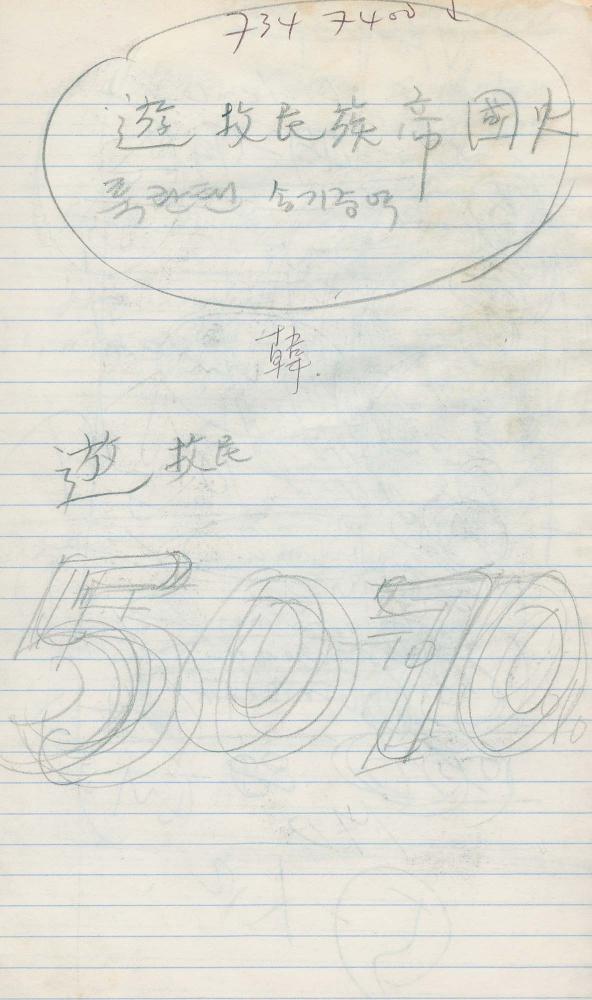 734 7400
遊牧民族帝國史
룩콴텐 송기중역
韓.
遊牧民
50 70%